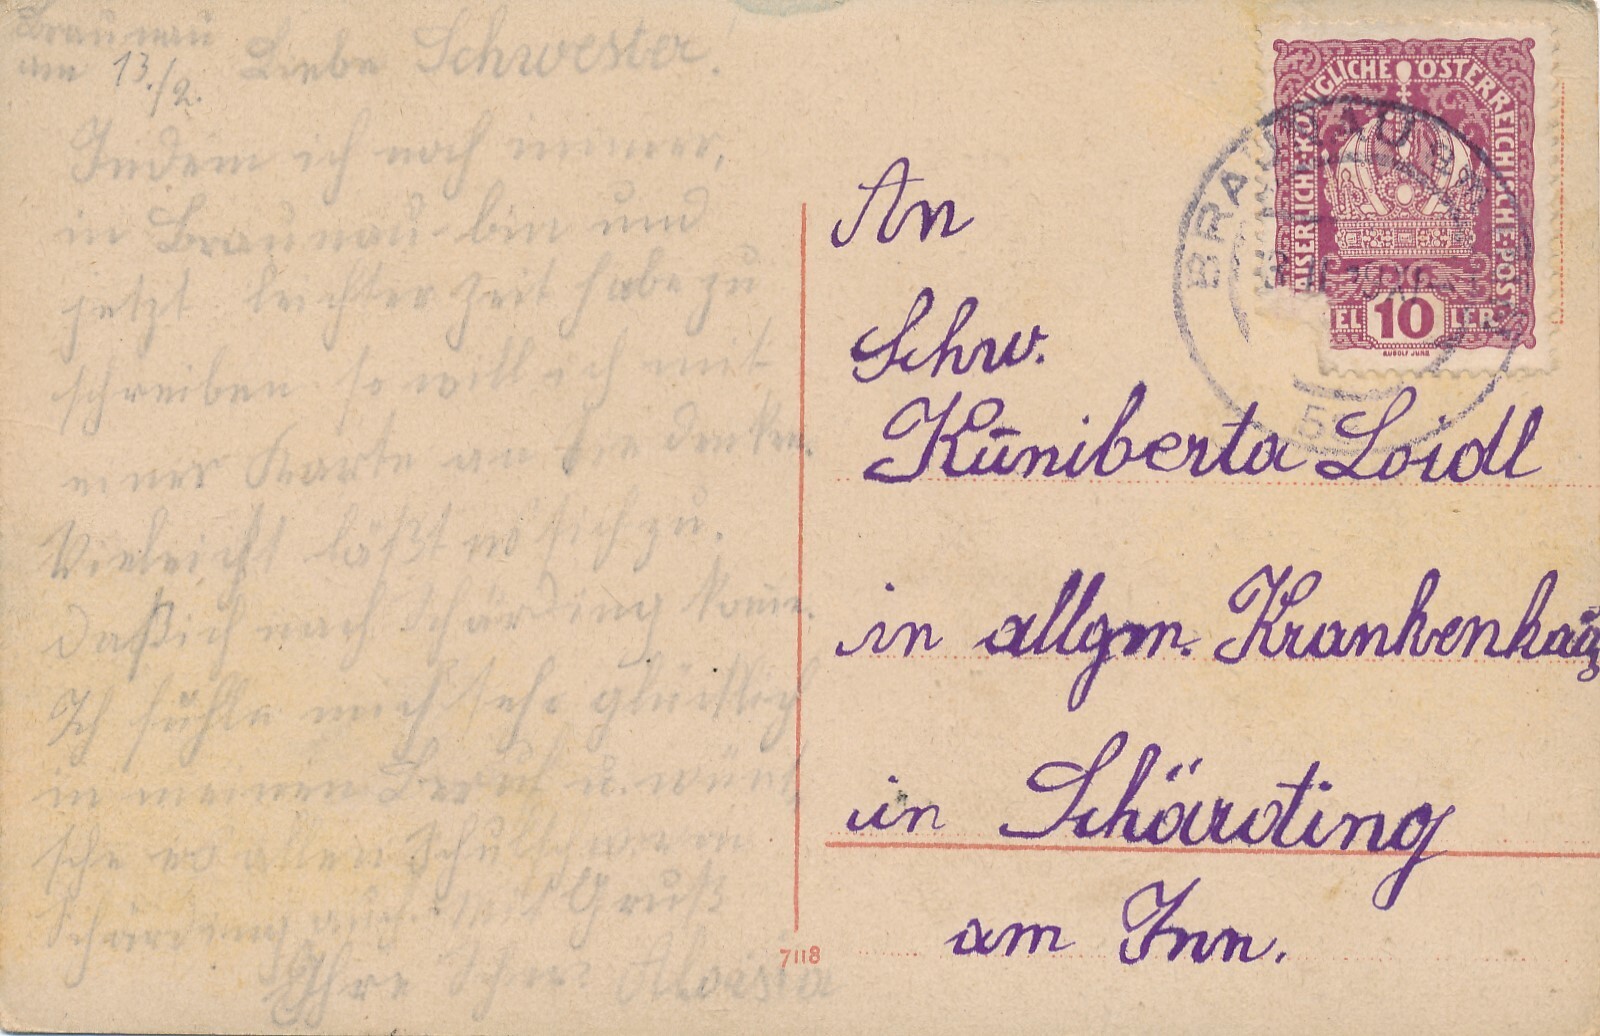 Braunau
am 13./2. Liebe Schwester!
Indem ich noch immer,
in Braunau bin und
jetzt leichter Zeit habe zu
schreiben so will ich mit
einer Karte an Sie denken.
Vieleicht läßt es sich zu,
daß ich nach Schärding komme.
Ich fühle mich sehr glücklich
in meinen Beruf u. wünt
sche es allen Schulschwestern
Schärding auch. Mit Gruß
Ihre Schw. Aloisia
KAISERLICHE KÖNIGLICHE ÖSTERREICHISCHE POST
10
HELLER
RUDOLF JUNG
BRAUNAU
An
Schw.
Kūniberta Loidl
in allgm. Krankenhaūs
in Schärding
am Inn.
7118